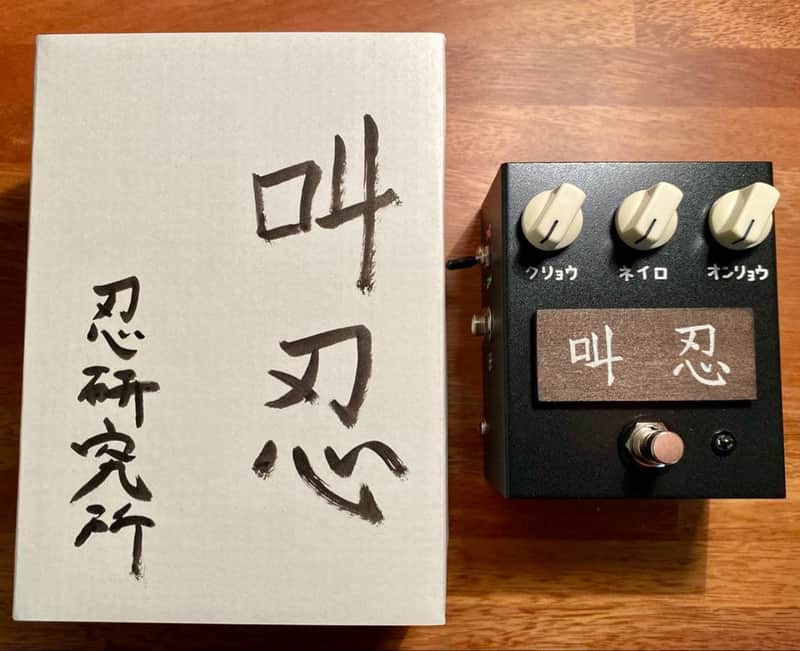 叫忍
忍研究所
クリョウ ネイロ オンリョウ
叫 忍